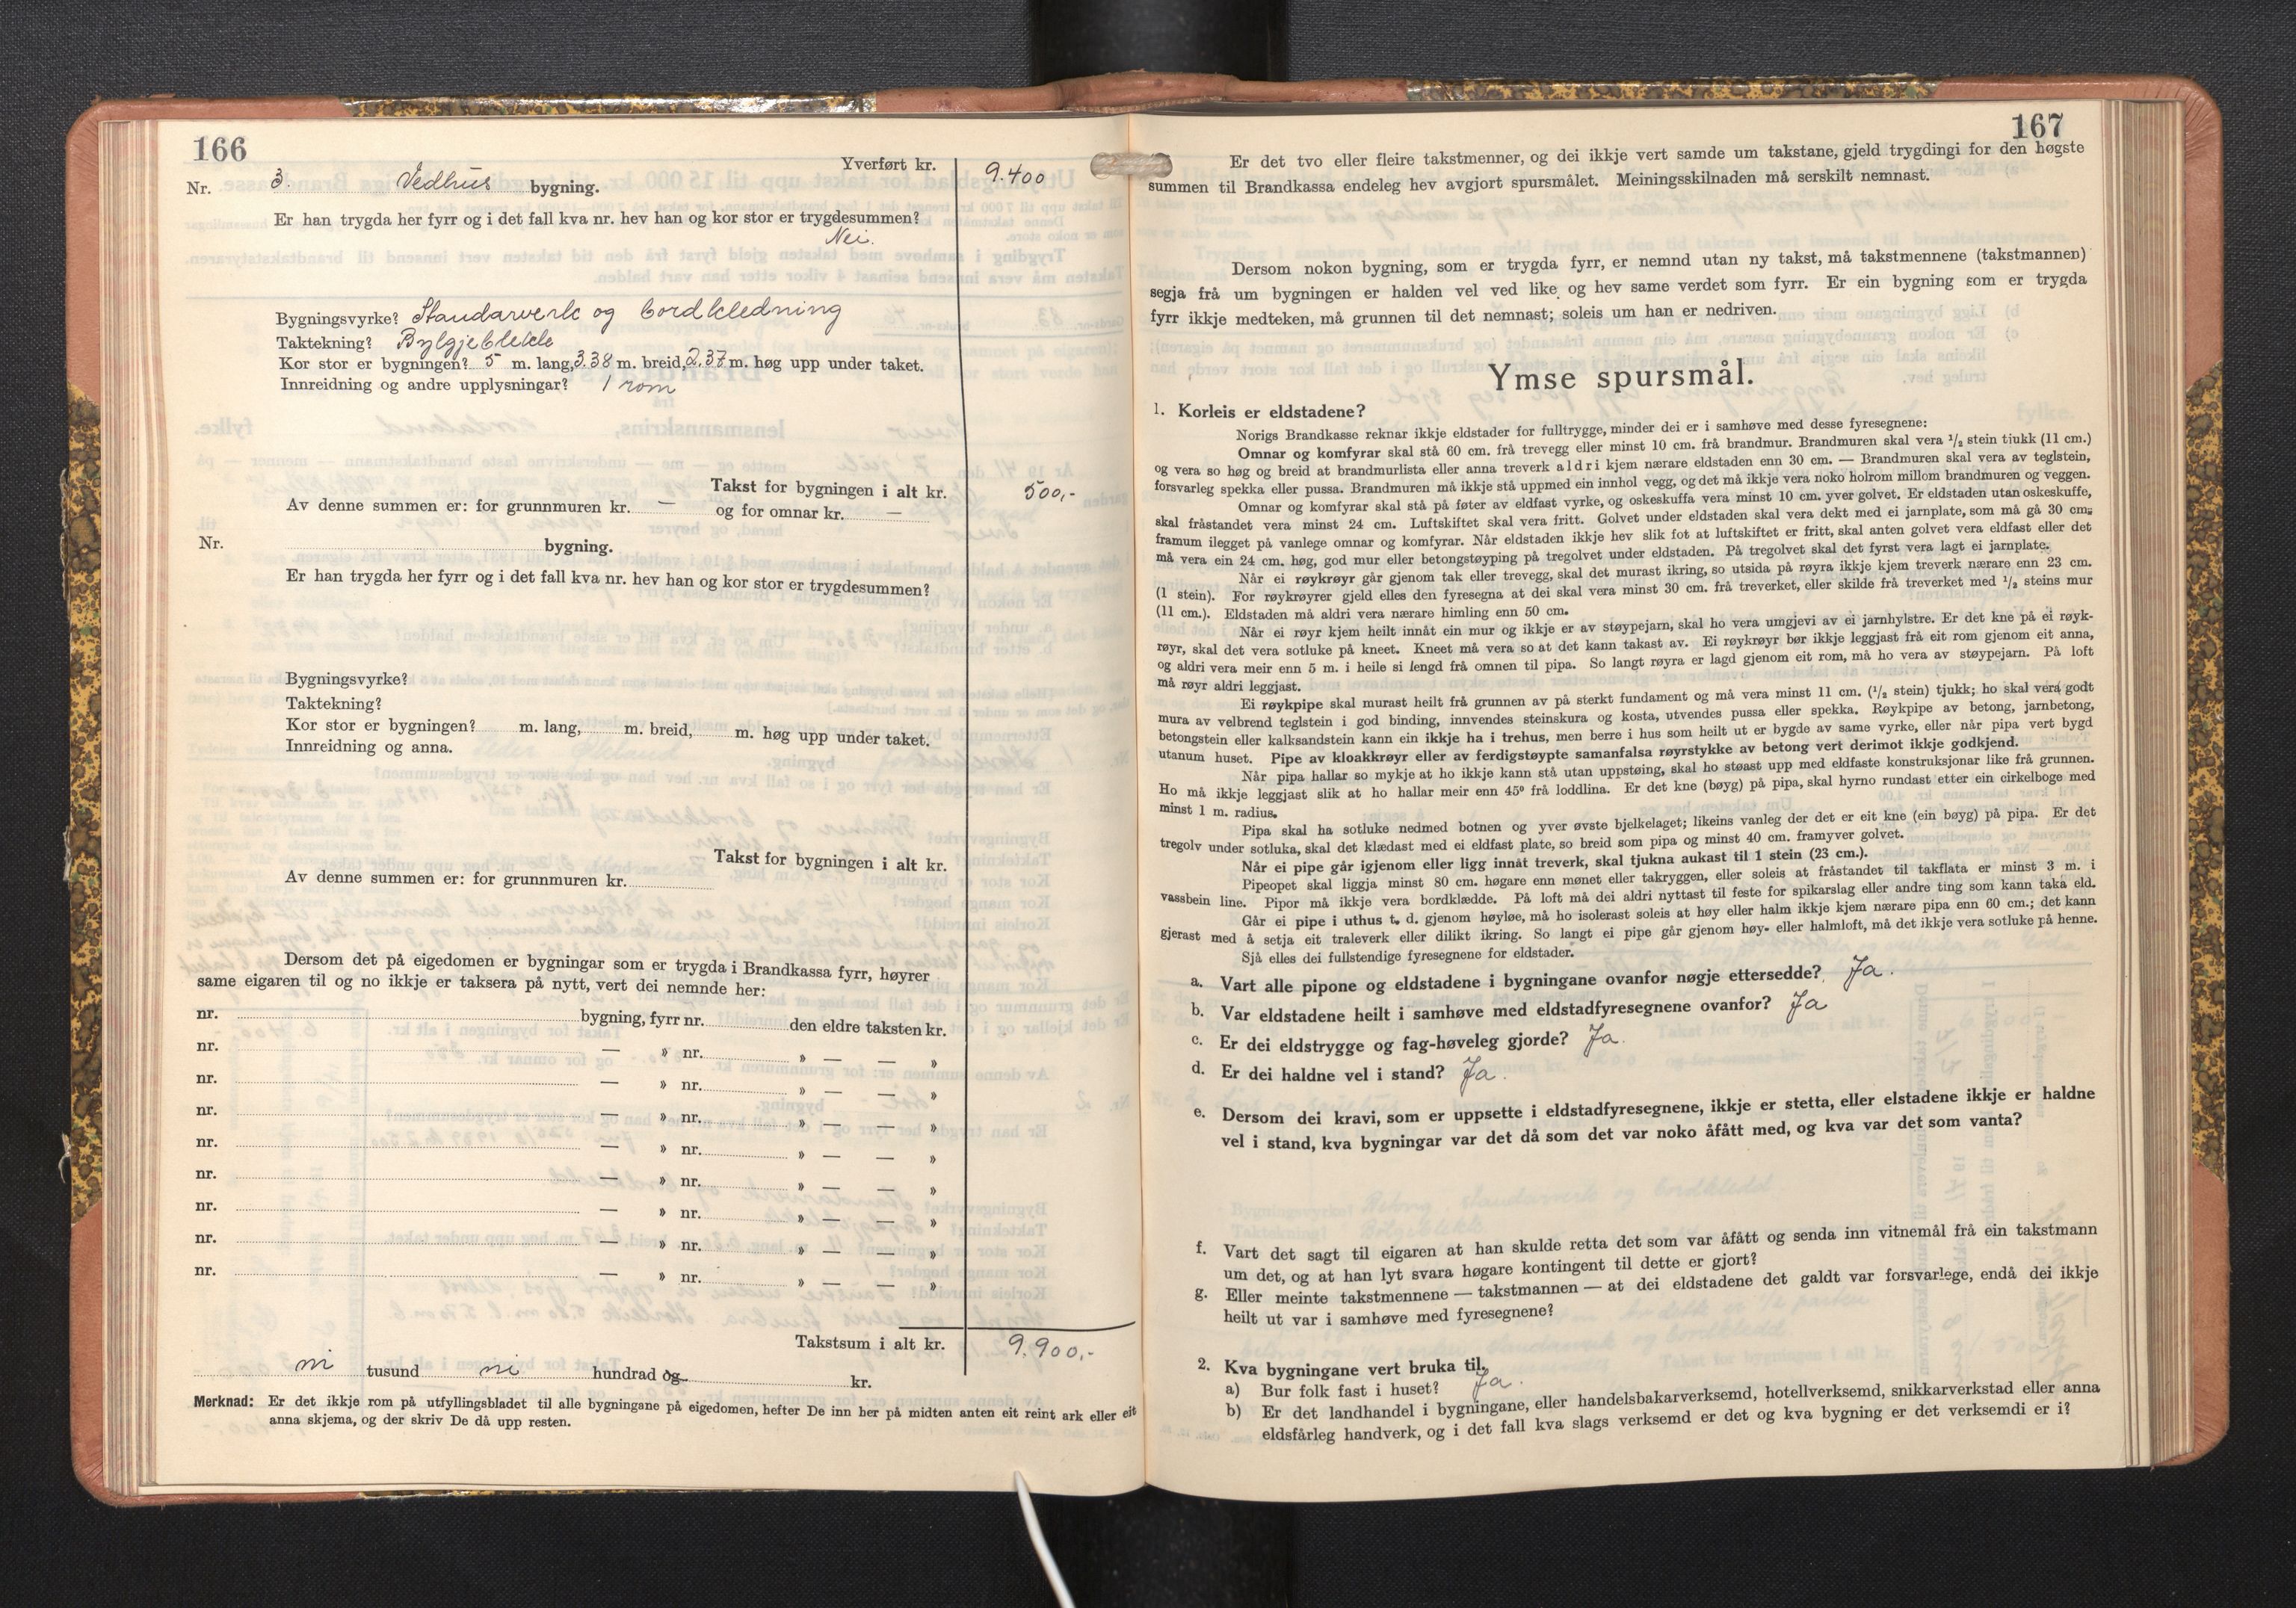 166
Yverført kr. 9.400
Nr. 3. Vedhus bygning.
Er han trygda her fyrr og i det fall kva nr. hev han og kor stor er trygdesummen?
Nei.
Bygningsvyrke? Standarverk og bordkledning
Taktekning? Bylgjeblekk
Kor stor er bygningen? 5 m. lang, 3.38 m. breid, 2.37 m. høg upp under taket.
Innreidning og andre upplysningar? 1 rom
Takst for bygningen i alt kr. 500,-
Av denne summen er: for grunnmuren kr. — og for omnar kr. —
Nr. bygning.
Er han trygda her fyrr og i det fall kva nr. hev han og kor stor er trygdesummen?
Bygningsvyrke?
Taktekning?
Kor stor er bygningen? m. lang, m. breid, m. høg upp under taket.
Innreidning og anna.
Takst for bygningen i alt kr.
Av denne summen er: for grunnmuren kr.
Dersom det på eigedomen er bygningar som er trygda i Brandkassa fyrr, høyrer
same eigaren til og no ikkje er taksera på nytt, vert dei nemnde her:
nr. bygning, fyrr nr. den eldre taksten kr.
nr. — » nr. » — — »
nr. — » nr. » — — »
nr. — » nr. » — — »
nr. — » nr. » — — »
nr. — » nr. » — — »
nr. — » nr. » — — »
nr. — » nr. » — — »
nr. — » nr. » — — »
Takstsum i alt kr. 9.900,-
ni tusund ni hundrad og kr.
Merknad: Er det ikkje rom på utfyllingsbladet til alle bygningane på eigedomen, hefter De inn her på midten anten eit reint ark eller eit
anna skjema, og der skriv De då upp resten.
167
Er det tvo eller fleire takstmenner, og dei ikkje vert samde um takstane, gjeld trygdingi for den høgste
summen til Brandkassa endeleg hev avgjort spursmålet. Meiningsskilnaden må serskilt nemnast.
Dersom nokon bygning, som er trygda fyrr, er nemnd utan ny takst, må takstmennene (takstmannen)
segja frå um bygningen er halden vel ved like og hev same verdet som fyrr. Er ein bygning som er trygda
fyrr ikkje medteken, må grunnen til det nemnast; soleis um han er nedriven.
Ymse spursmål.
1. Korleis er eldstadene?
Norigs Brandkasse reknar ikkje eldstader for fulltrygge, minder dei er i samhøve med desse fyresegnene:
Omnar og komfyrar skal stå 60 cm. frå trevegg eller minst 10 cm. frå brandmur. Brandmuren skal vera 1/2 stein tjukk (11 cm.)
og vera so høg og breid at brandmurlista eller anna treverk aldri kjem nærare eldstaden enn 30 cm. — Brandmuren skal vera av teglstein,
forsvarleg spekka eller pussa. Brandmuren må ikkje stå uppmed ein innhol vegg, og det må ikkje vera noko holrom millom brandmuren og veggen.
Omnar og komfyrar skal stå på føter av eldfast vyrke, og oskeskuffa vera minst 10 cm. yver golvet. Er eldstaden utan oskeskuffe,
skal fråstandet vera minst 24 cm. Luftskiftet skal vera fritt. Golvet under eldstaden skal vera dekt med ei jarnplate, som må gå 30 cm.
framum ilegget på vanlege omnar og komfyrar. Når eldstaden ikkje hev slik fot at luftskiftet er fritt, skal anten golvet vera eldfast eller det
må vera ein 24 cm. høg, god mur eller betongstøyping på tregolvet under eldstaden. På tregolvet skal det fyrst vera lagt ei jarnplate.
Når ei røykrøyr går gjenom tak eller trevegg, skal det murast ikring, so utsida på røyra ikkje kjem treverk nærare enn 23 cm.
(1 stein). For røykrøyrer gjeld elles den fyresegna at dei skal vera minst 30 cm. frå treverket, eller skilde frå treverket med 1/2 steins mur
(11 cm.). Eldstaden må aldri vera nærare himling enn 50 cm.
Når ei røyr kjem heilt innåt ein mur og ikkje er av støypejarn, skal ho vera umgjevi av ei jarnhylstre. Er det kne på ei røyk-
røyr, skal det vera sotluke på kneet. Kneet må vera so at det kann takast av. Ei røykrøyr bør ikkje leggjast frå eit rom gjenom eit anna,
og aldri vera meir enn 5 m. i heile si lengd frå omnen til pipa. So langt røyra er lagd gjenom eit rom, må ho vera av støypejarn. På loft
må røyr aldri leggjast.
Ei røykpipe skal murast heilt frå grunnen av på sterkt fundament og må vera minst 11 cm. (1/2 stein) tjukk; ho skal vera godt
mura av velbrend teglstein i god binding, innvendes steinskura og kosta, utvendes pussa eller spekka. Røykpipe av betong, jarnbetong,
betongstein eller kalksandstein kann ein ikkje ha i trehus, men berre i hus som heilt ut er bygde av same vyrke, eller når pipa vert bygd
utanum huset. Pipe av kloakkrøyr eller av ferdigstøypte samanfalsa røyrstykke av betong vert derimot ikkje godkjend.
Når pipa hallar so mykje at ho ikkje kann stå utan uppstøing, skal ho støast upp med eldfaste konstruksjonar like frå grunnen.
Ho må ikkje leggjast slik at ho hallar meir enn 45° frå loddlina. Er det kne (bøyg) på pipa, skal hyrno rundast etter ein cirkelboge med
minst 1 m. radius.
Pipa skal ha sotluke nedmed botnen og yver øvste bjelkelaget; likeins vanleg der det er eit kne (ein bøyg) på pipa. Er det
tregolv under sotluka, skal det klædast med ei eldfast plate, so breid som pipa og minst 40 cm. framyver golvet.
Når ei pipe går igjenom eller ligg innåt treverk, skal tjukna aukast til 1 stein (23 cm.).
Pipeopet skal liggja minst 80 cm. høgare enn mønet eller takryggen, eller soleis at fråstandet til takflata er minst 3 m. i
vassbein line. Pipor må ikkje vera bordklædde. På loft må dei aldri nyttast til feste for spikarslag eller andre ting som kann taka eld.
Går ei pipe i uthus t. d. gjenom høyløe, må ho isolerast soleis at høy eller halm ikkje kjem nærare pipa enn 60 cm.; det kann
gjerast med å setja eit traleverk eller dilikt ikring. So langt ei pipe går gjenom høy- eller halmloft, må det ikkje vera sotluke på henne.
Sjå elles dei fullstendige fyresegnene for eldstader.
a. Vart alle pipone og eldstadene i bygningane ovanfor nøgje ettersedde? Ja.
b. Var eldstadene heilt i samhøve med eldstadfyresegnene ovanfor? Ja
c. Er dei eldstrygge og fag-høveleg gjorde? Ja.
d. Er dei haldne vel i stand? Ja.
e. Dersom dei kravi, som er uppsette i eldstadfyresegnene, ikkje er stetta, eller elstadene ikkje er haldne
vel i stand, kva bygningar var det då som det var noko åfått med, og kva var det som vanta?
f. Vart det sagt til eigaren at han skulde retta det som var åfått og senda inn vitnemål frå ein takstmann
um det, og at han lyt svara høgare kontingent til dette er gjort?
g. Eller meinte takstmennene — takstmannen — at dei eldstadene det galdt var forsvarlege, endå dei ikkje
heilt ut var i samhøve med fyresegnene?
2. Kva bygningane vert bruka til.
a) Bur folk fast i huset? Ja.
b) Er det landhandel i bygningane, eller handelsbakarverksemd, hotellverksemd, snikkarverkstad eller anna
eldsfårleg handverk, og i det fall kva slags verksemd er det og kva bygning er det verksemdi er i?